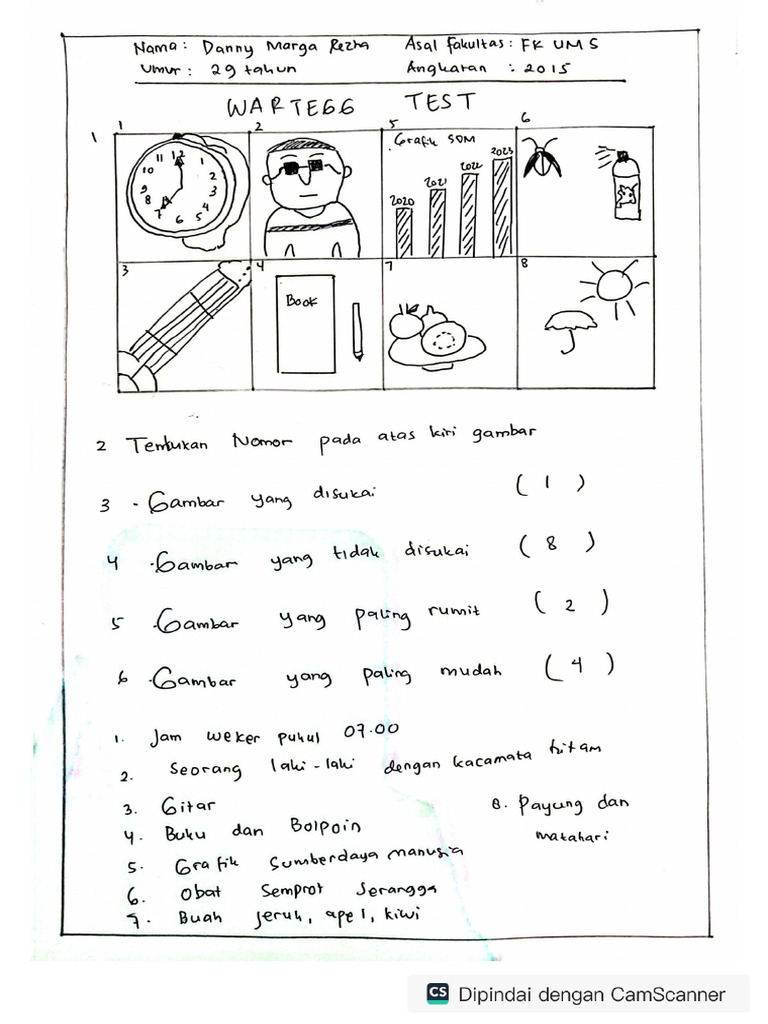 Nama : Danny Marga Rezha Asal Fakultas : FK UMS
Umur : 29 tahun Angkatan : 2015
WARTEGG TEST
1 1 2 5 6
12 1 2 3 4 5 6 7 8 9 10 11
Grafik SDM
2020 2021 2022 2023
3 4 7 8
Book
2 Tentukan Nomor pada atas kiri gambar
3 - Gambar yang disukai ( 1 )
4 - Gambar yang tidak disukai ( 8 )
5 - Gambar yang paling rumit ( 2 )
6 - Gambar yang paling mudah ( 4 )
1. Jam weker pukul 07.00
2. Seorang laki-laki dengan kacamata hitam
3. Gitar
4. Buku dan Bolpoin
5. Grafik Sumberdaya manusia
6. Obat Semprot Serangga
7. Buah jeruk, apel, kiwi
8. Payung dan
matahari
CS Dipindai dengan CamScanner